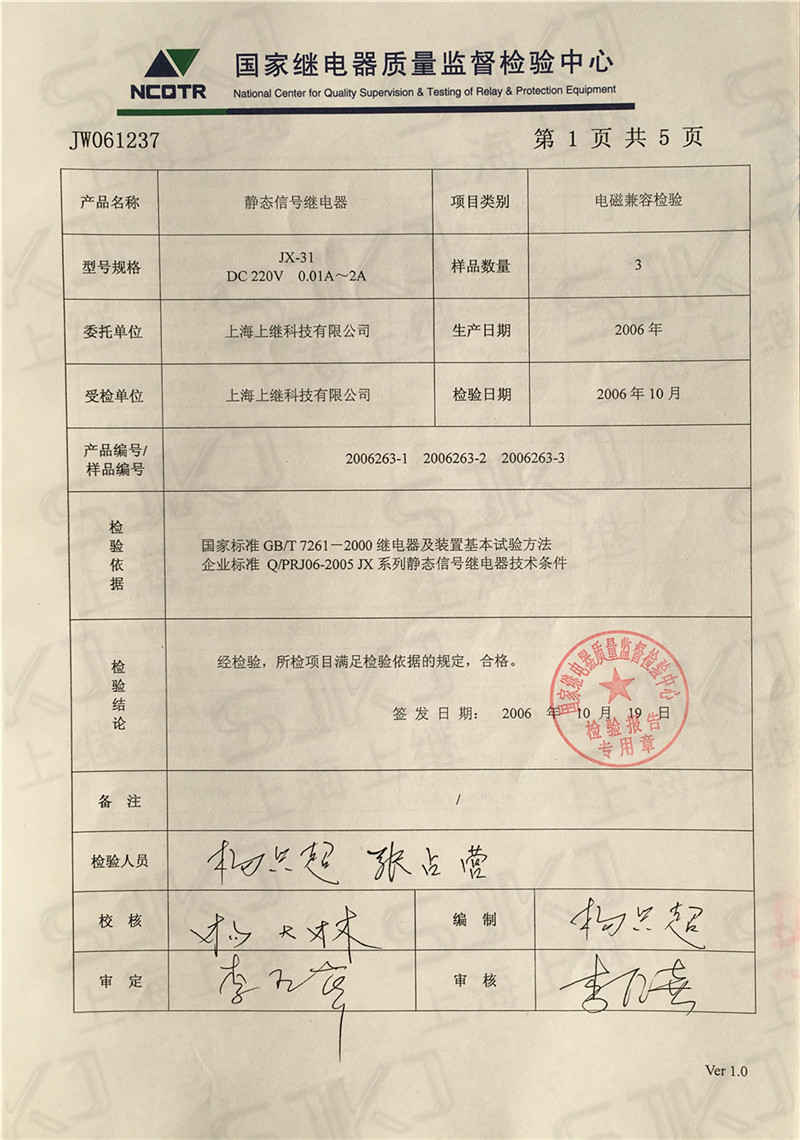 国家继电器质量监督检验中心
NCQTR
National Center for Quality Supervision & Testing of Relay & Protection Equipment
JW061237
第 1 页 共 5 页
产品名称 静态信号继电器 项目类别 电磁兼容检验
型号规格 JX-31 DC 220V 0.01A～2A 样品数量 3
委托单位 上海上继科技有限公司 生产日期 2006 年
受检单位 上海上继科技有限公司 检验日期 2006 年 10 月
产品编号/样品编号 2006263-1 2006263-2 2006263-3
检验依据
国家标准 GB/T 7261－2000 继电器及装置基本试验方法
企业标准 Q/PRJ06-2005 JX 系列静态信号继电器技术条件
检验结论
经检验，所检项目满足检验依据的规定，合格。
签 发 日 期： 2006 年 10 月 19 日
国家继电器质量监督检验中心
检验报告
专用章
备 注 /
检验人员 张占营
校 核
编 制
审 定
审 核
Ver 1.0